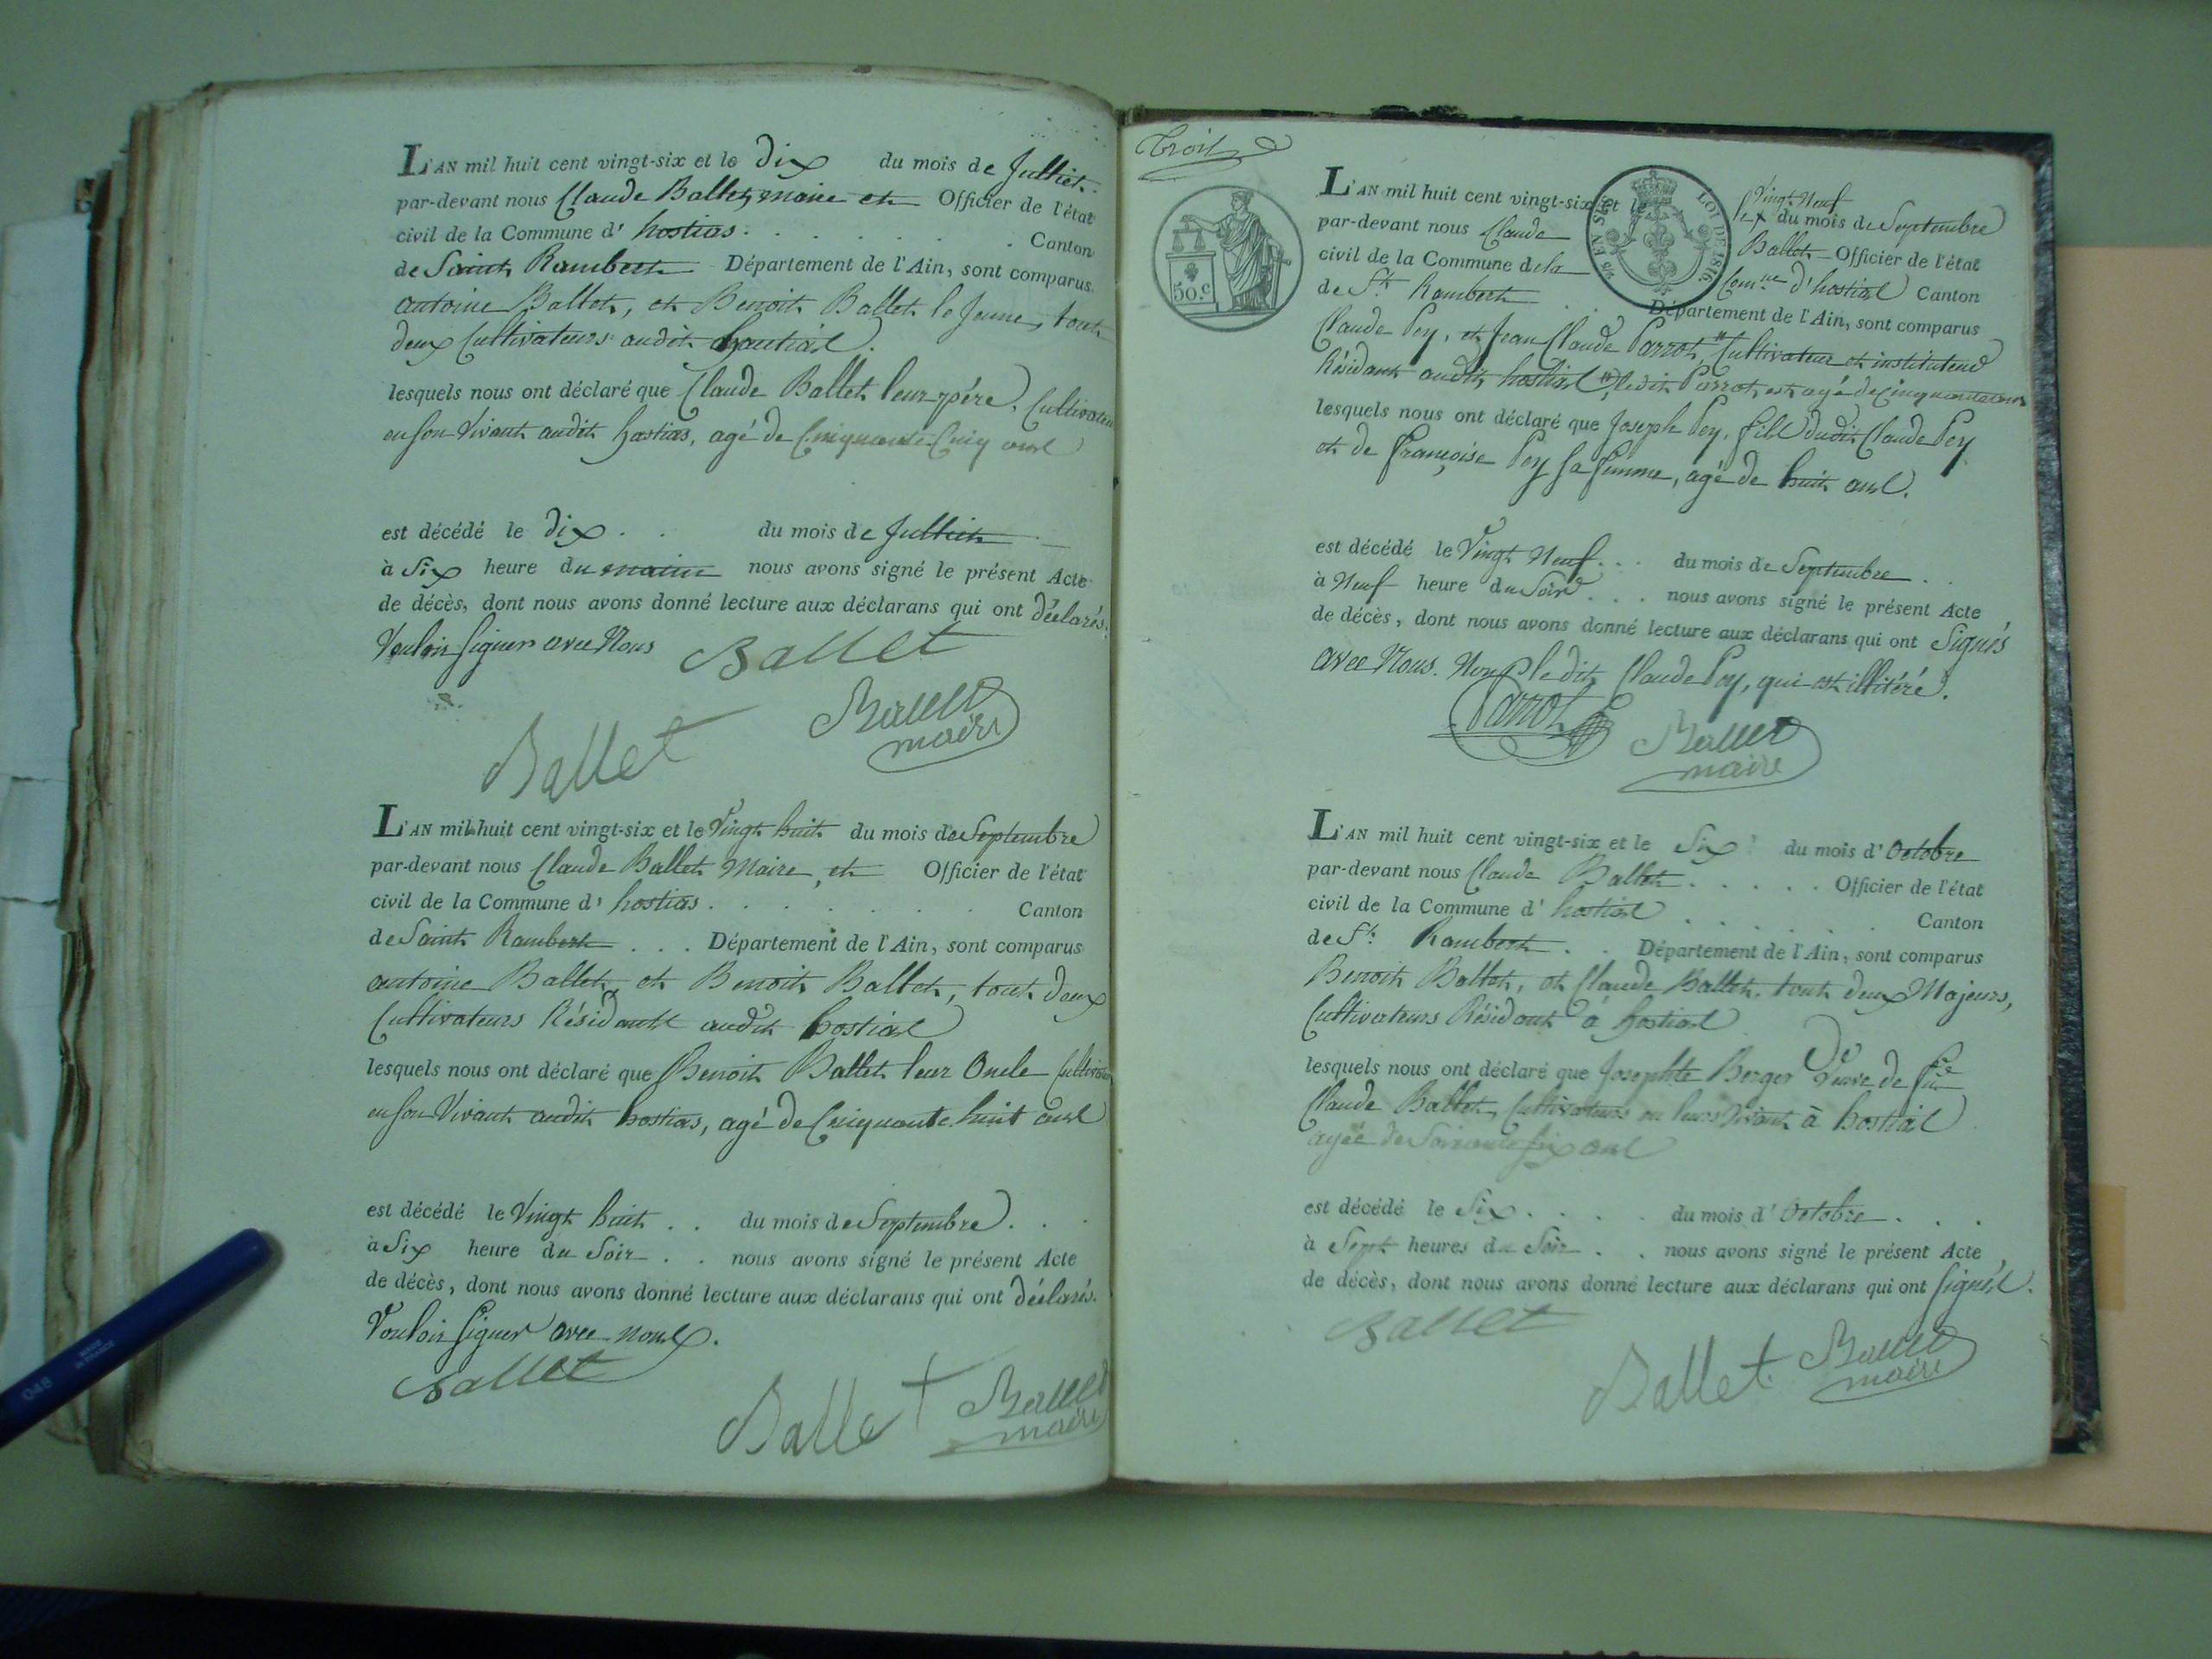 L'AN mil huit cent vingt-six et le dix du mois de Julliet.
par-devant nous Claude Ballet, maire et Officier de l'état
civil de la Commune d' hostias. Canton
de Saint Rambert Département de l'Ain, sont comparus
antoine Ballet, et Benoit Ballet le Jeune, tout
deux Cultivateurs audit hostias.
lesquels nous ont déclaré que Claude Ballet leur père, Cultivateur
en son Vivant audit hostias, agé de Cinquante Cinq ans
est décédé le dix . . du mois de Julliet
à Six heure du matin nous avons signé le présent Acte
de décès, dont nous avons donné lecture aux déclarans qui ont déclarés.
Vouloir signer avec Nous Ballet
Ballet
maire
Ballet
L'AN mil huit cent vingt-six et le Vingt huit du mois de Septembre
par-devant nous Claude Ballet Maire, et Officier de l'état
civil de la Commune d' hostias . . . . . . . Canton
de Saint Rambert . . . Département de l'Ain, sont comparus
antoine Ballet et Benoit Ballet, tout deux
Cultivateurs Résidants audit hostias
lesquels nous ont déclaré que Benoit Ballet leur Oncle Cultivateur
en son Vivant audit hostias, agé de Cinquante huit ans
est décédé le Vingt huit . . du mois de Septembre . . .
à Six heure du Soir . . nous avons signé le présent Acte
de décès, dont nous avons donné lecture aux déclarans qui ont déclarés.
Vouloir signer avec nous.
Ballet
Ballet
Ballet
maire
Trois
50.c
LOI DE 1816
L'AN mil huit cent vingt-six et le Vingt Neuf
du mois de Septembre
par-devant nous Claude Ballet Officier de l'état
civil de la Commune de la Com.ne d'hostias Canton
de St. Rambert Département de l'Ain, sont comparus
Claude Pey, et Jean Claude Parrot, Cultivateur et instituteur
Résidant audit hostias, ledit Parrot est agé de Cinquante ans
lesquels nous ont déclaré que Joseph Pey, fils dudit Claude Pey
et de Françoise Pey sa femme, agé de huit ans.
est décédé le Vingt Neuf . . . du mois de Septembre . .
à Neuf heure du Soir . . . nous avons signé le présent Acte
de décès, dont nous avons donné lecture aux déclarans qui ont Signés
avec Nous. Non ledit Claude Pey, qui est illitéré.
Parrot
Ballet
maire
L'AN mil huit cent vingt-six et le Six du mois d' Octobre
par-devant nous Claude Ballet . . . . . Officier de l'état
civil de la Commune d' hostias . . . . . . Canton
de St. Rambert . . Département de l'Ain, sont comparus
Benoit Ballet, et Claude Ballet, tout deux Majeurs,
Cultivateurs Résidant à hostias
lesquels nous ont déclaré que Josephte Berger Veuve de
Claude Ballet, Cultivateurs en leurs Vivant à hostias
agée de Soixante six ans
est décédé le Six . . . . du mois d' Octobre . . .
à Sept heures du Soir . . nous avons signé le présent Acte
de décès, dont nous avons donné lecture aux déclarans qui ont signés.
Ballet
Ballet
Ballet
maire